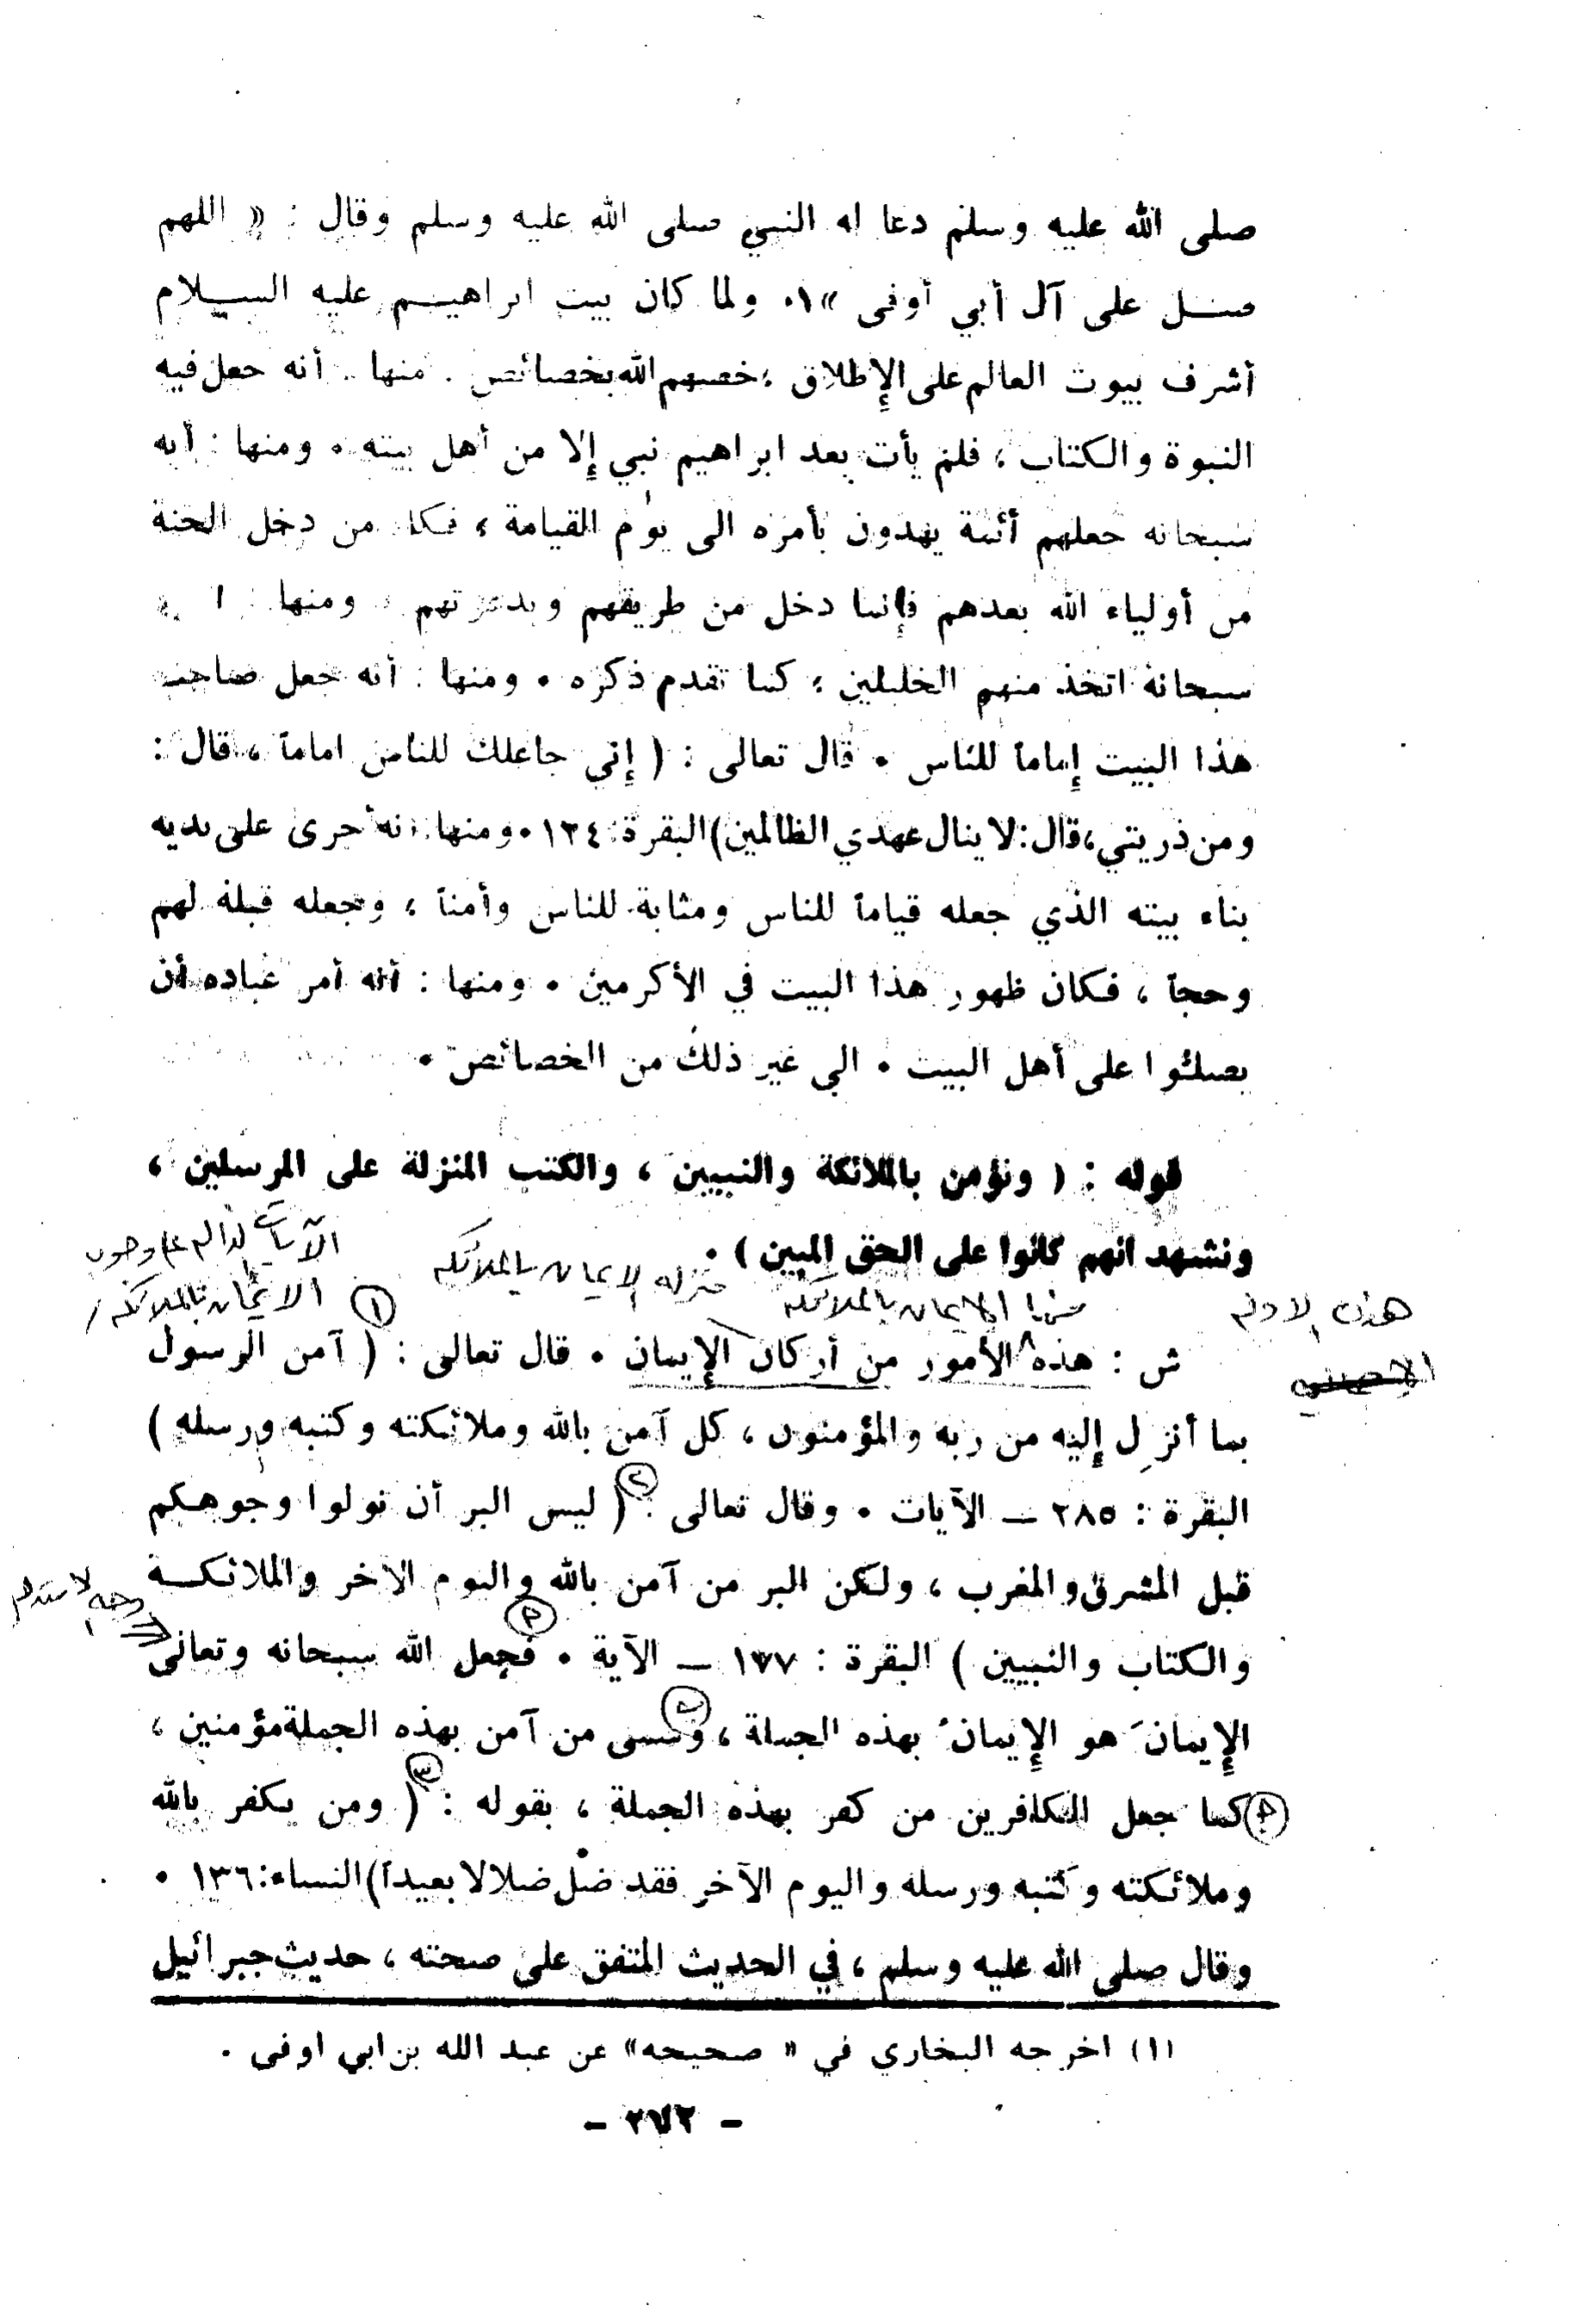 صلى الله عليه وسلم دعا له النبي صلى الله عليه وسلم وقال : « اللهم
صل على آل أبي أوفى »١٠ ولما كان بيت ابراهيم عليه السلام
أشرف بيوت العالم على الإطلاق ، خصهم الله بخصائص . منها : أنه جعل فيه
النبوة والكتاب ، فلم يأت بعد ابراهيم نبي إلا من أهل بيته ٠ ومنها : أنه
سبحانه جعلهم أئمة يهدون بأمره الى يوم القيامة ، فكل من دخل الجنة
من أولياء الله بعدهم فإنما دخل من طريقهم وبدعوتهم ٠ ومنها :
سبحانه اتخذ منهم الخليلين ، كما تقدم ذكره ٠ ومنها : أنه جعل صاحب
هذا البيت إماماً للناس ٠ قال تعالى : ( إني جاعلك للناس اماماً ، قال :
ومن ذريتي، قال: لا ينال عهدي الظالمين) البقرة: ١٢٤ ٠ ومنها: أنه أجرى على يديه
بناء بيته الذي جعله قياماً للناس ومثابة للناس وأمناً ، وجعله قبلة لهم
وحجاً ، فكان ظهور هذا البيت في الأكرمين ٠ ومنها : أنه أمر عباده أن
يصلّوا على أهل البيت ٠ الى غير ذلك من الخصائص ٠
قوله : ( ونؤمن بالملائكة والنبيين ، والكتب المنزلة على المرسلين ،
ونشهد انهم كانوا على الحق المبين ) ٠
منزلة الإيمان بالملائكة
الإيمان بالملائكة
منها الإيمان بالملائكة
١
ش : هذه الأمور من أركان الإيمان ٠ قال تعالى : ( آمن الرسول
بما أنزل إليه من ربه والمؤمنون ، كل آمن بالله وملائكته وكتبه ورسله )
٢
البقرة : ٢٨٥ – الآيات ٠ وقال تعالى : ( ليس البر أن تولوا وجوهكم
قبل المشرق والمغرب ، ولكن البر من آمن بالله واليوم الآخر والملائكة
والكتاب والنبيين ) البقرة : ١٧٧ – الآية ٠ فجعل الله سبحانه وتعالى
الإيمانَ هو الإيمانُ بهذه الجملة ، وسمى من آمن بهذه الجملة مؤمنين ،
٣
كما جعل الكافرين من كفر بهذه الجملة ، بقوله : ( ومن يكفر بالله
وملائكته وكتبه ورسله واليوم الآخر فقد ضل ضلالا بعيداً) النساء: ١٣٦ ٠
وقال صلى الله عليه وسلم ، في الحديث المتفق على صحته ، حديث جبرائيل
(١) اخرجه البخاري في « صحيحه» عن عبد الله بن ابي اوفى .
– ٢٧٢ –